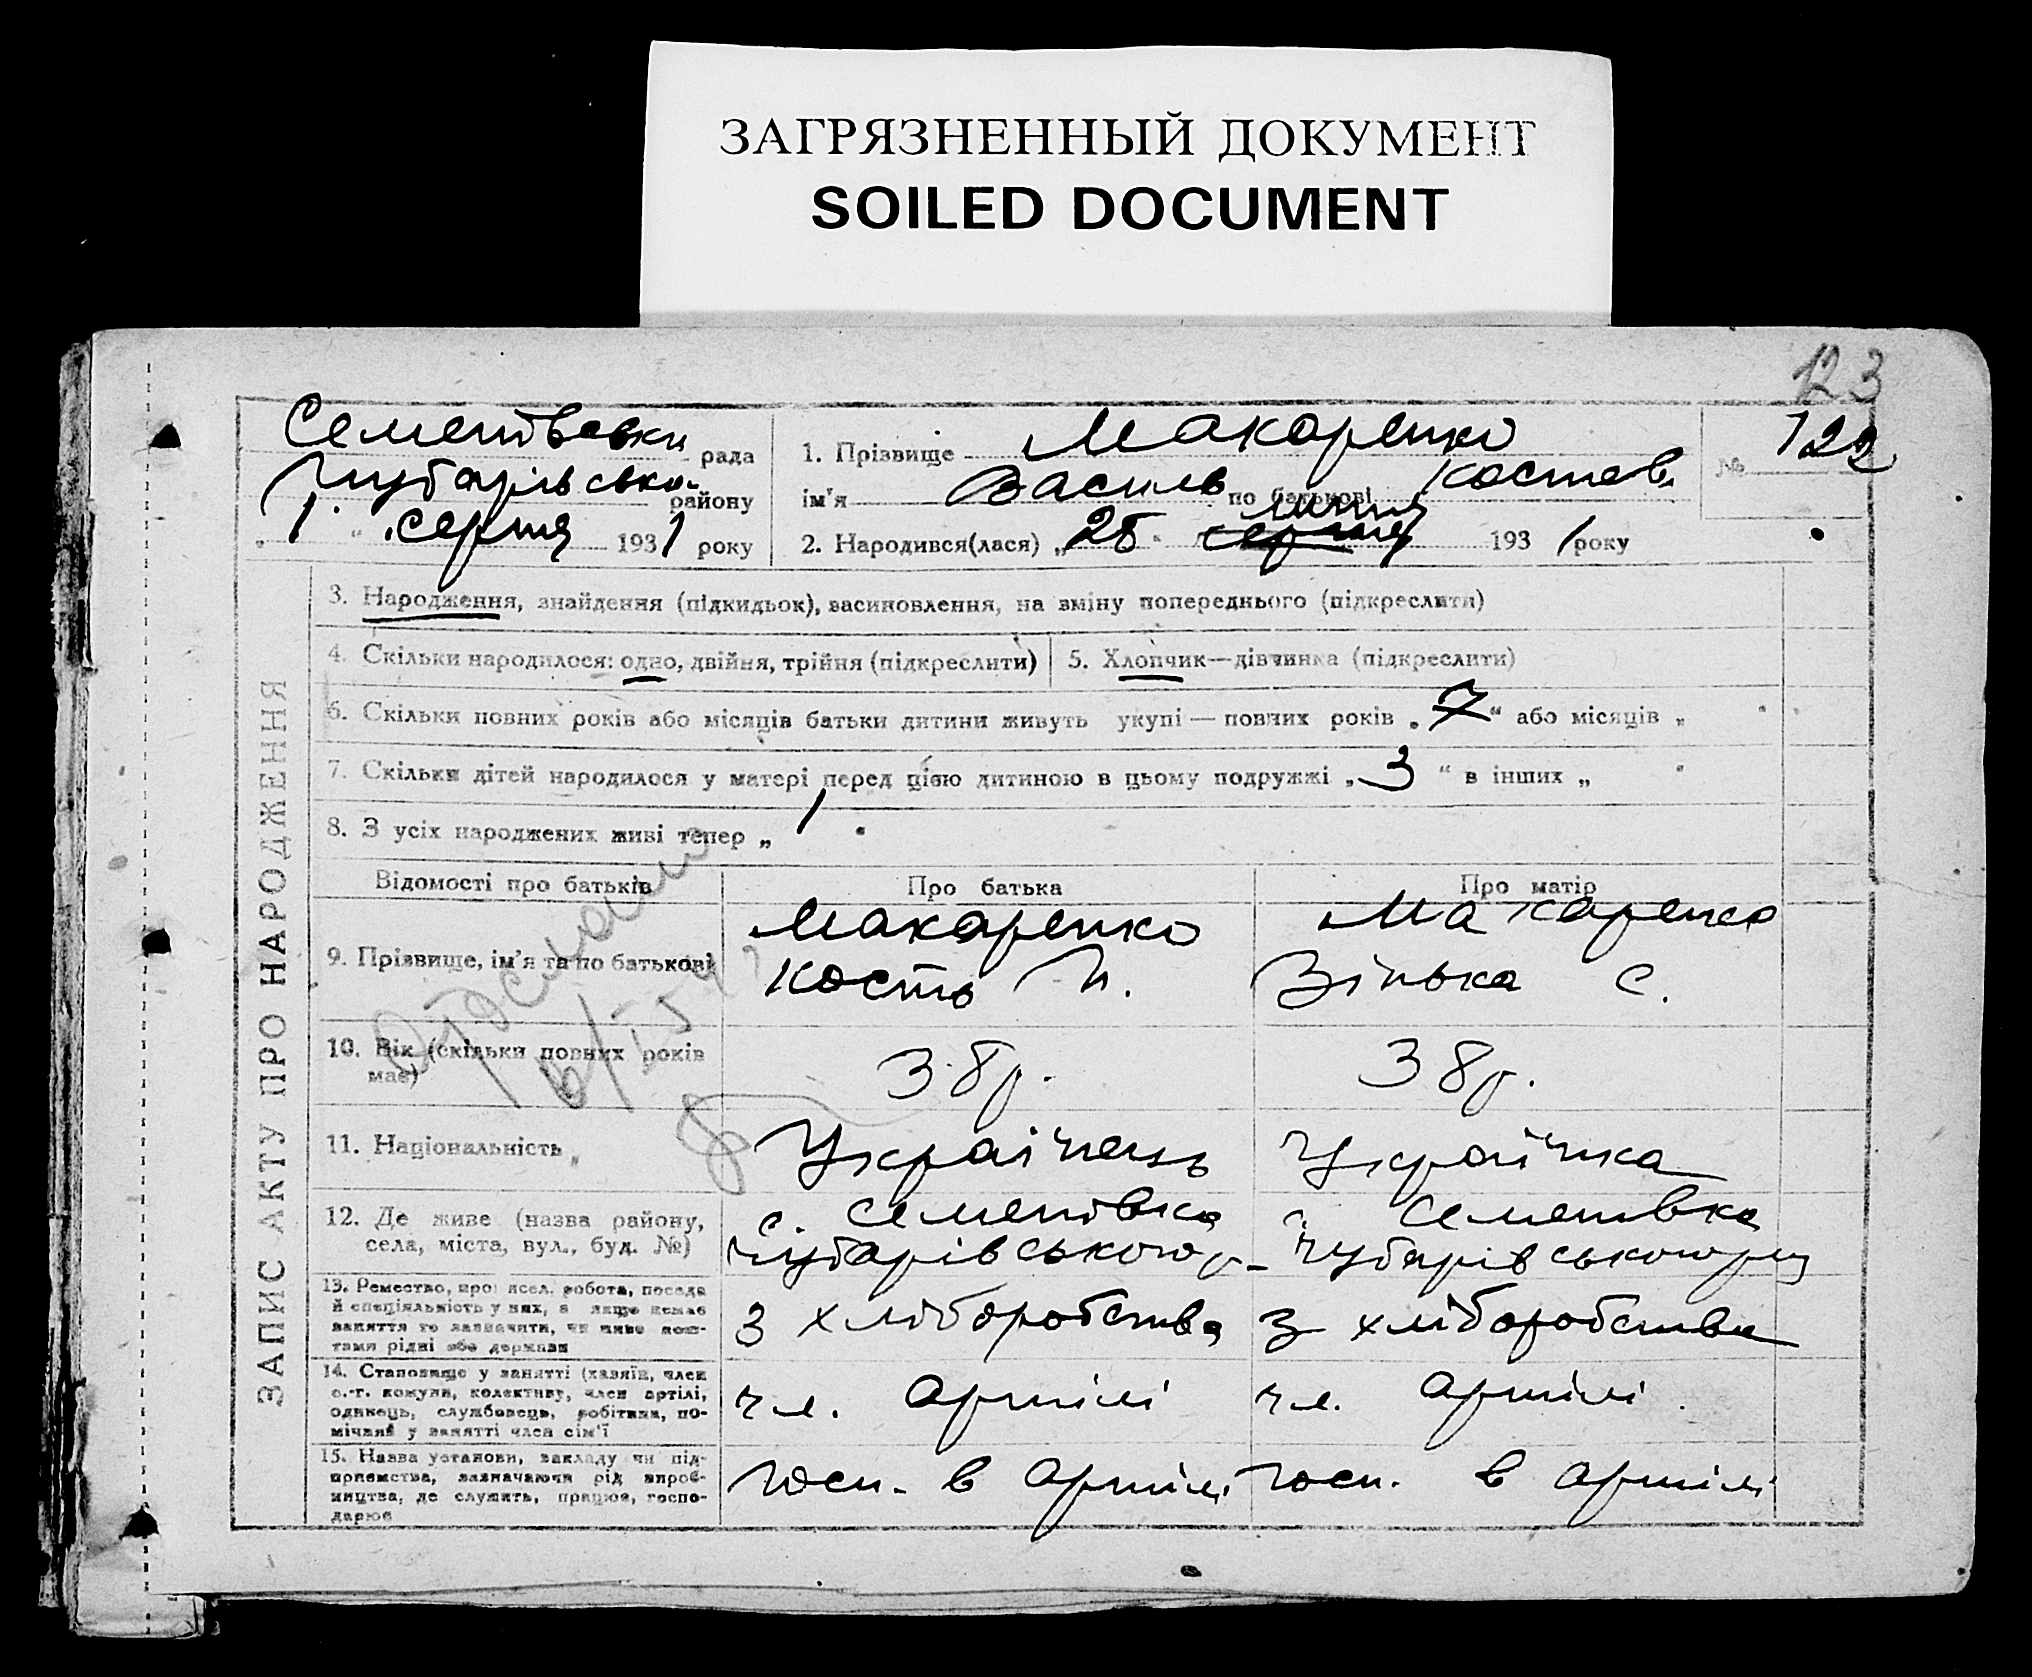 ЗАГРЯЗНЕННЫЙ ДОКУМЕНТ
SOILED DOCUMENT
123
рада
Чубарівсько- району
„ 1 " серпня 1931 року
1. Прізвище Макаренко
ім'я Василь по батькові Костев.
№ 122
2. Народився(лася) „ 25 " серпня липня 1931 року
ЗАПИС АКТУ ПРО НАРОДЖЕННЯ
3. Народження, знайдення (підкидьок), засиновлення, на зміну попереднього (підкреслити)
4. Скільки народилося: одно, двійня, трійня (підкреслити)
5. Хлопчик—дівчинка (підкреслити)
6. Скільки повних років або місяців батьки дитини живуть укупі — повних років „ 7 " або місяців „ "
7. Скільки дітей народилося у матері перед цією дитиною в цьому подружжі „ 3 " в інших „ "
8. З усіх народжених живі тепер „ 1 "
Відомості про батьків
Про батька
Про матір
9. Прізвище, ім'я та по батькові
Макаренко
Кость И.
Макаренко
Зінька С.
10. Вік (скільки повних років має)
38 р.
38 р.
11. Національність „
Українець
Українка
12. Де живе (назва району,
села, міста, вул., буд. №)
с. Семенівка
Чубарівського р-
с. Семенівка
Чубарівського р-
13. Ремество, проф, осел. робота, посада
й спеціяльність у них, а якщо немає
заняття то зазначити, чи живе кош-
тами рідні або держави
З хліборобства
З хліборобства
14. Становище у занятті (хазяїн, член
с.-г. комуни, колективу, член артілі,
одинець, службовець, робітник, по-
мічний у занятті член сім'ї
чл. артілі
чл. артілі
15. Назва установи, закладу чи під-
приємства, зазначаючи рід вироб-
ництва, де служить, працює, госпо-
дарює
госп. в артілі
госп. в артілі